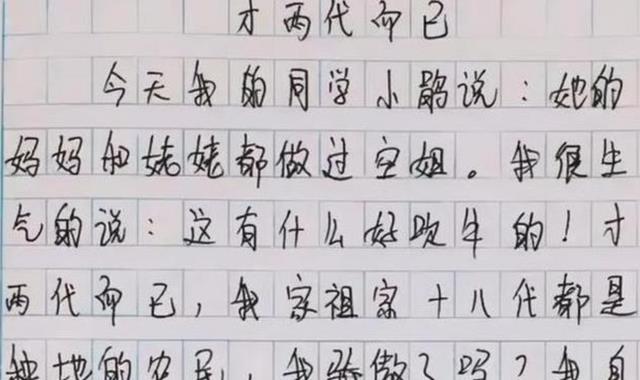 才两代而已
今天我的同学小鹃说：她的
妈妈和姥姥都做过空姐。我很生
气的说：这有什么好吹牛的！才
两代而已，我家祖宗十八代都是
种地的农民，我骄傲了吗？我自